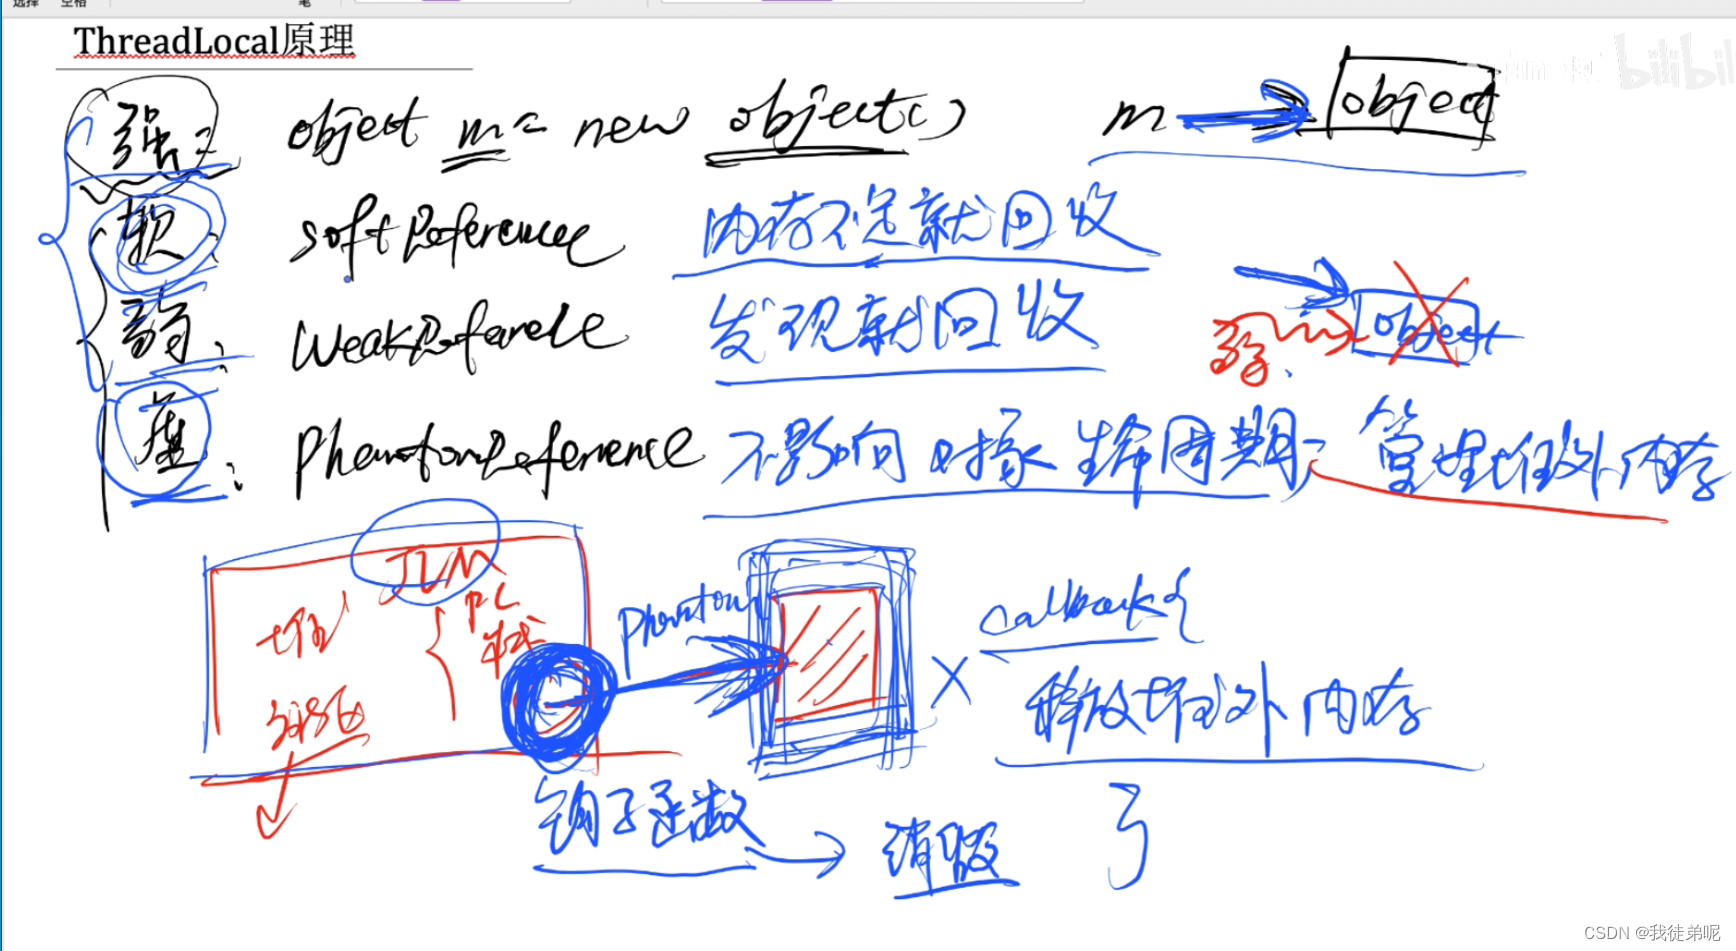 选择 空格 笔
ThreadLocal原理
bilibili
强: object m = new object() m object
软: softReference 内存不足就回收
弱: WeakReference 发现就回收 弱 object
虚: PhantomReference 不影响对象生命周期, 管理堆外内存
JVM
堆 栈 Phantom callback {
释放堆外内存
钩子函数 销毁 }
CSDN @我徒弟呢